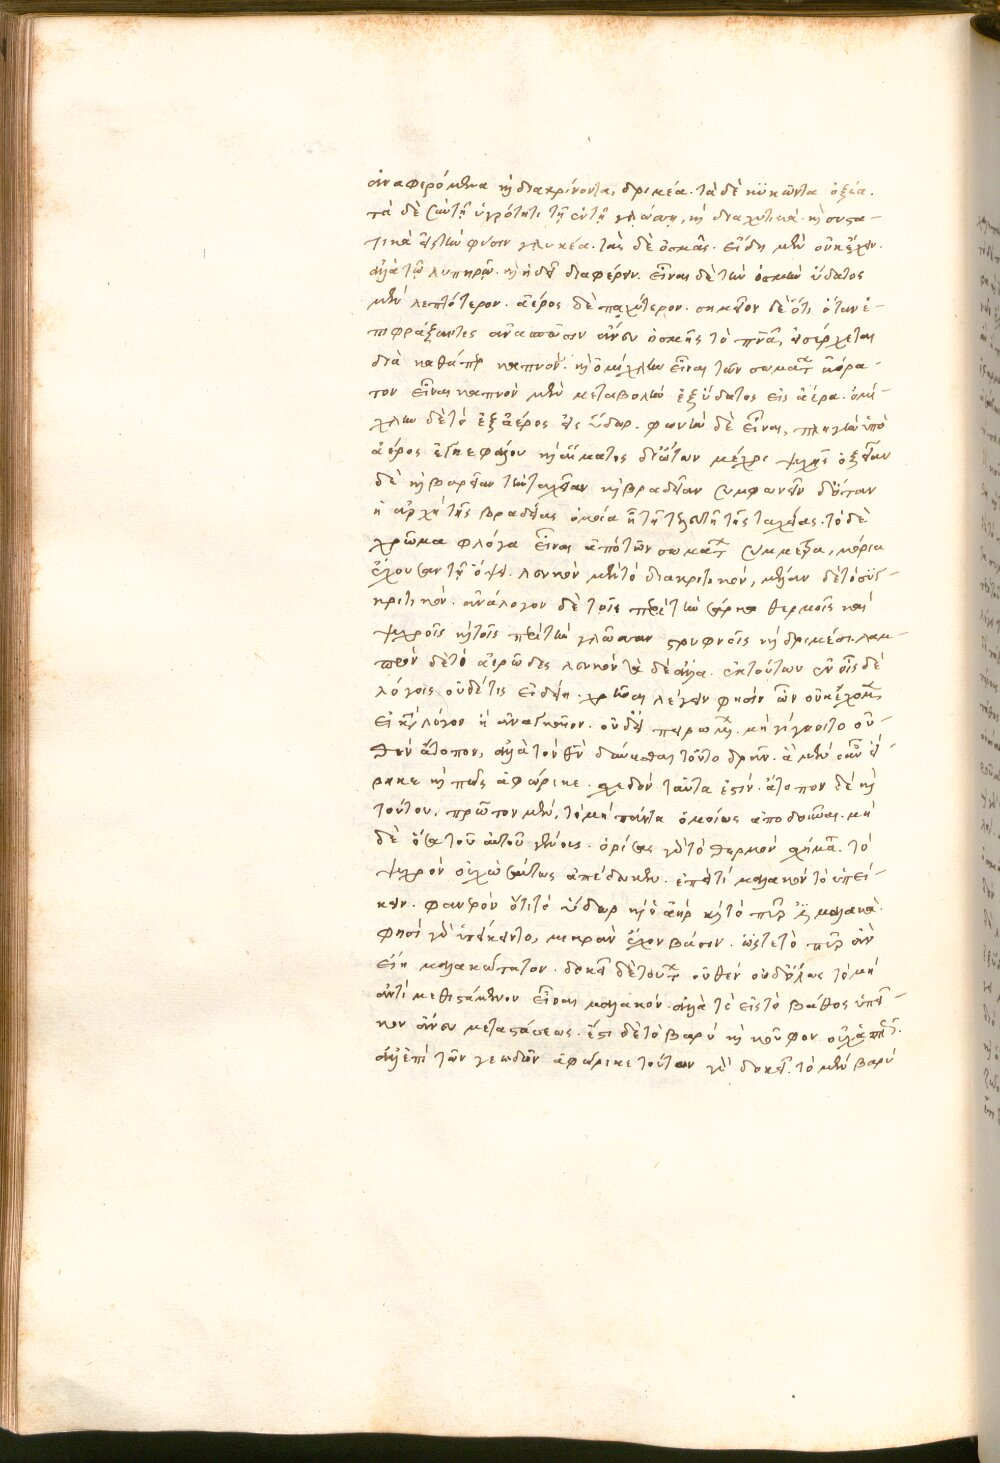 ἀναφερόμενα καὶ διακρίνοντα, δριμέα. τὰ δὲ κυκῶντα ὀξέα.
τὰ δὲ σὺν τῇ ὑγρότητι τῇ ἐν τῇ γλώττῃ, καὶ διαχυτικὰ. καὶ συστα-
τικὰ εἰς τὴν φύσιν γλυκέα. τὰς δὲ ὀσμὰς. εἴδη μὲν οὐκ ἔχειν.
ἀλλὰ τῷ λυπηρῷ. καὶ ἡδεῖ διαφέρειν. εἶναι δὲ τὴν ὀσμὴν ὕδατος
μὲν λεπτότερον. ἀέρος δὲ παχύτερον. σημεῖον δὲ ὅτι ὅταν ἐ-
πιφράξαντες ἀνασπῶσιν ἄνευ ὀσμῆς τὸ πνεῦμα εἰσέρχεται
διὰ καθάπερ καπνὸν. καὶ ὀμίχλην εἶναι τῶν σωμάτων ἀόρα-
τον εἶναι καπνὸν μὲν μεταβολὴν ἐξ ὕδατος εἰς ἀέρα. ὀμί-
χλην δὲ τὸ ἐξ ἀέρος εἰς ὕδωρ. φωνὴν δὲ εἶναι, πληγὴν ὑπὸ
ἀέρος ἐγκεφάλου καὶ αἵματος δι' ὤτων μέχρι ψυχῆς ὀξεῖαν
δὲ καὶ βαρεῖαν τὴν ταχεῖαν καὶ βραδεῖαν συμφωνεῖν δ' ὅταν
ἡ ἀρχὴ τῆς βραδείας ὁμοία ᾖ τῇ τελευτῇ τῆς ταχείας. τὸ δὲ
χρῶμα φλόγα εἶναι ἀπὸ τῶν σωμάτων σύμμετρα, μόρια
ἔχουσαν τῇ ὄψει. λευκὸν μὲν τὸ διακριτικόν, μέλαν δὲ τὸ συγ-
κριτικόν. ἀνάλογον δὲ τοῖς περὶ τὴν σάρκα θερμοῖς καὶ
ψυχροῖς καὶ τοῖς περὶ τὴν γλῶτταν στρυφνοῖς καὶ δριμέσι. λαμ-
πρὸν δὲ τὸ πυρῶδες λευκὸν τὰ δὲ ἄλλα. ἐκ τούτων ἐν οἷς δὲ
λόγοις οὐδέ τις εἰδείη. χρῆναι λέγειν φησὶν ὧν οὐκ ἔχομεν
εἰκότα λόγον ἢ ἀναγκαῖον. οὐδ' εἰ πειρωμένῳ. μὴ γίγνοιτο οὐ-
θὲν ἄτοπον, ἀλλὰ τὸν θεὸν δύνασθαι τοῦτο δρᾶν. ἃ μὲν οὖν εἴ-
ρηκε καὶ πῶς ἀφώρικε. σχεδὸν ταῦτά ἐστιν. ἄτοπον δὲ καὶ
τούτου, πρῶτον μὲν, τὸ μὴ πάντα ὁμοίως ἀποδοῦναι. μη
δὲ ὅσα τοῦ αὐτοῦ γένους. ὁρίσας γὰρ τὸ θερμὸν σχήματι. τὸ
ψυχρὸν οὐχ ὡσαύτως ἀπέδωκεν. ἔπειτ' εἰ μαλακὸν τὸ ὑπεί-
κειν. φανερὸν ὅτι τὸ ὕδωρ καὶ ὁ ἀὴρ καὶ τὸ πῦρ μαλακὰ.
φησὶ γὰρ ὑπείκειν τὸ, μικρὰν ἔχον βάσιν. ὥστε τὸ πῦρ ἂν
εἴη μαλακώτατον. δοκεῖ δὲ τούτων οὐθὲν οὐδ' ὅλως τὸ μὴ
ἀντιμεθιστάμενον εἶναι μαλακόν. ἀλλὰ τὸ εἰς τὸ βάθος ὑπεῖ-
κον ἄνευ μεταστάσεως. ἔτι δὲ τὸ βαρὺ καὶ κοῦφον οὐχ ἁπλῶς.
ἀλλ' ἐπὶ τῶν γεωδῶν ἀφώρικε τούτων γὰρ δοκεῖ. τὸ μὲν βαρὺ